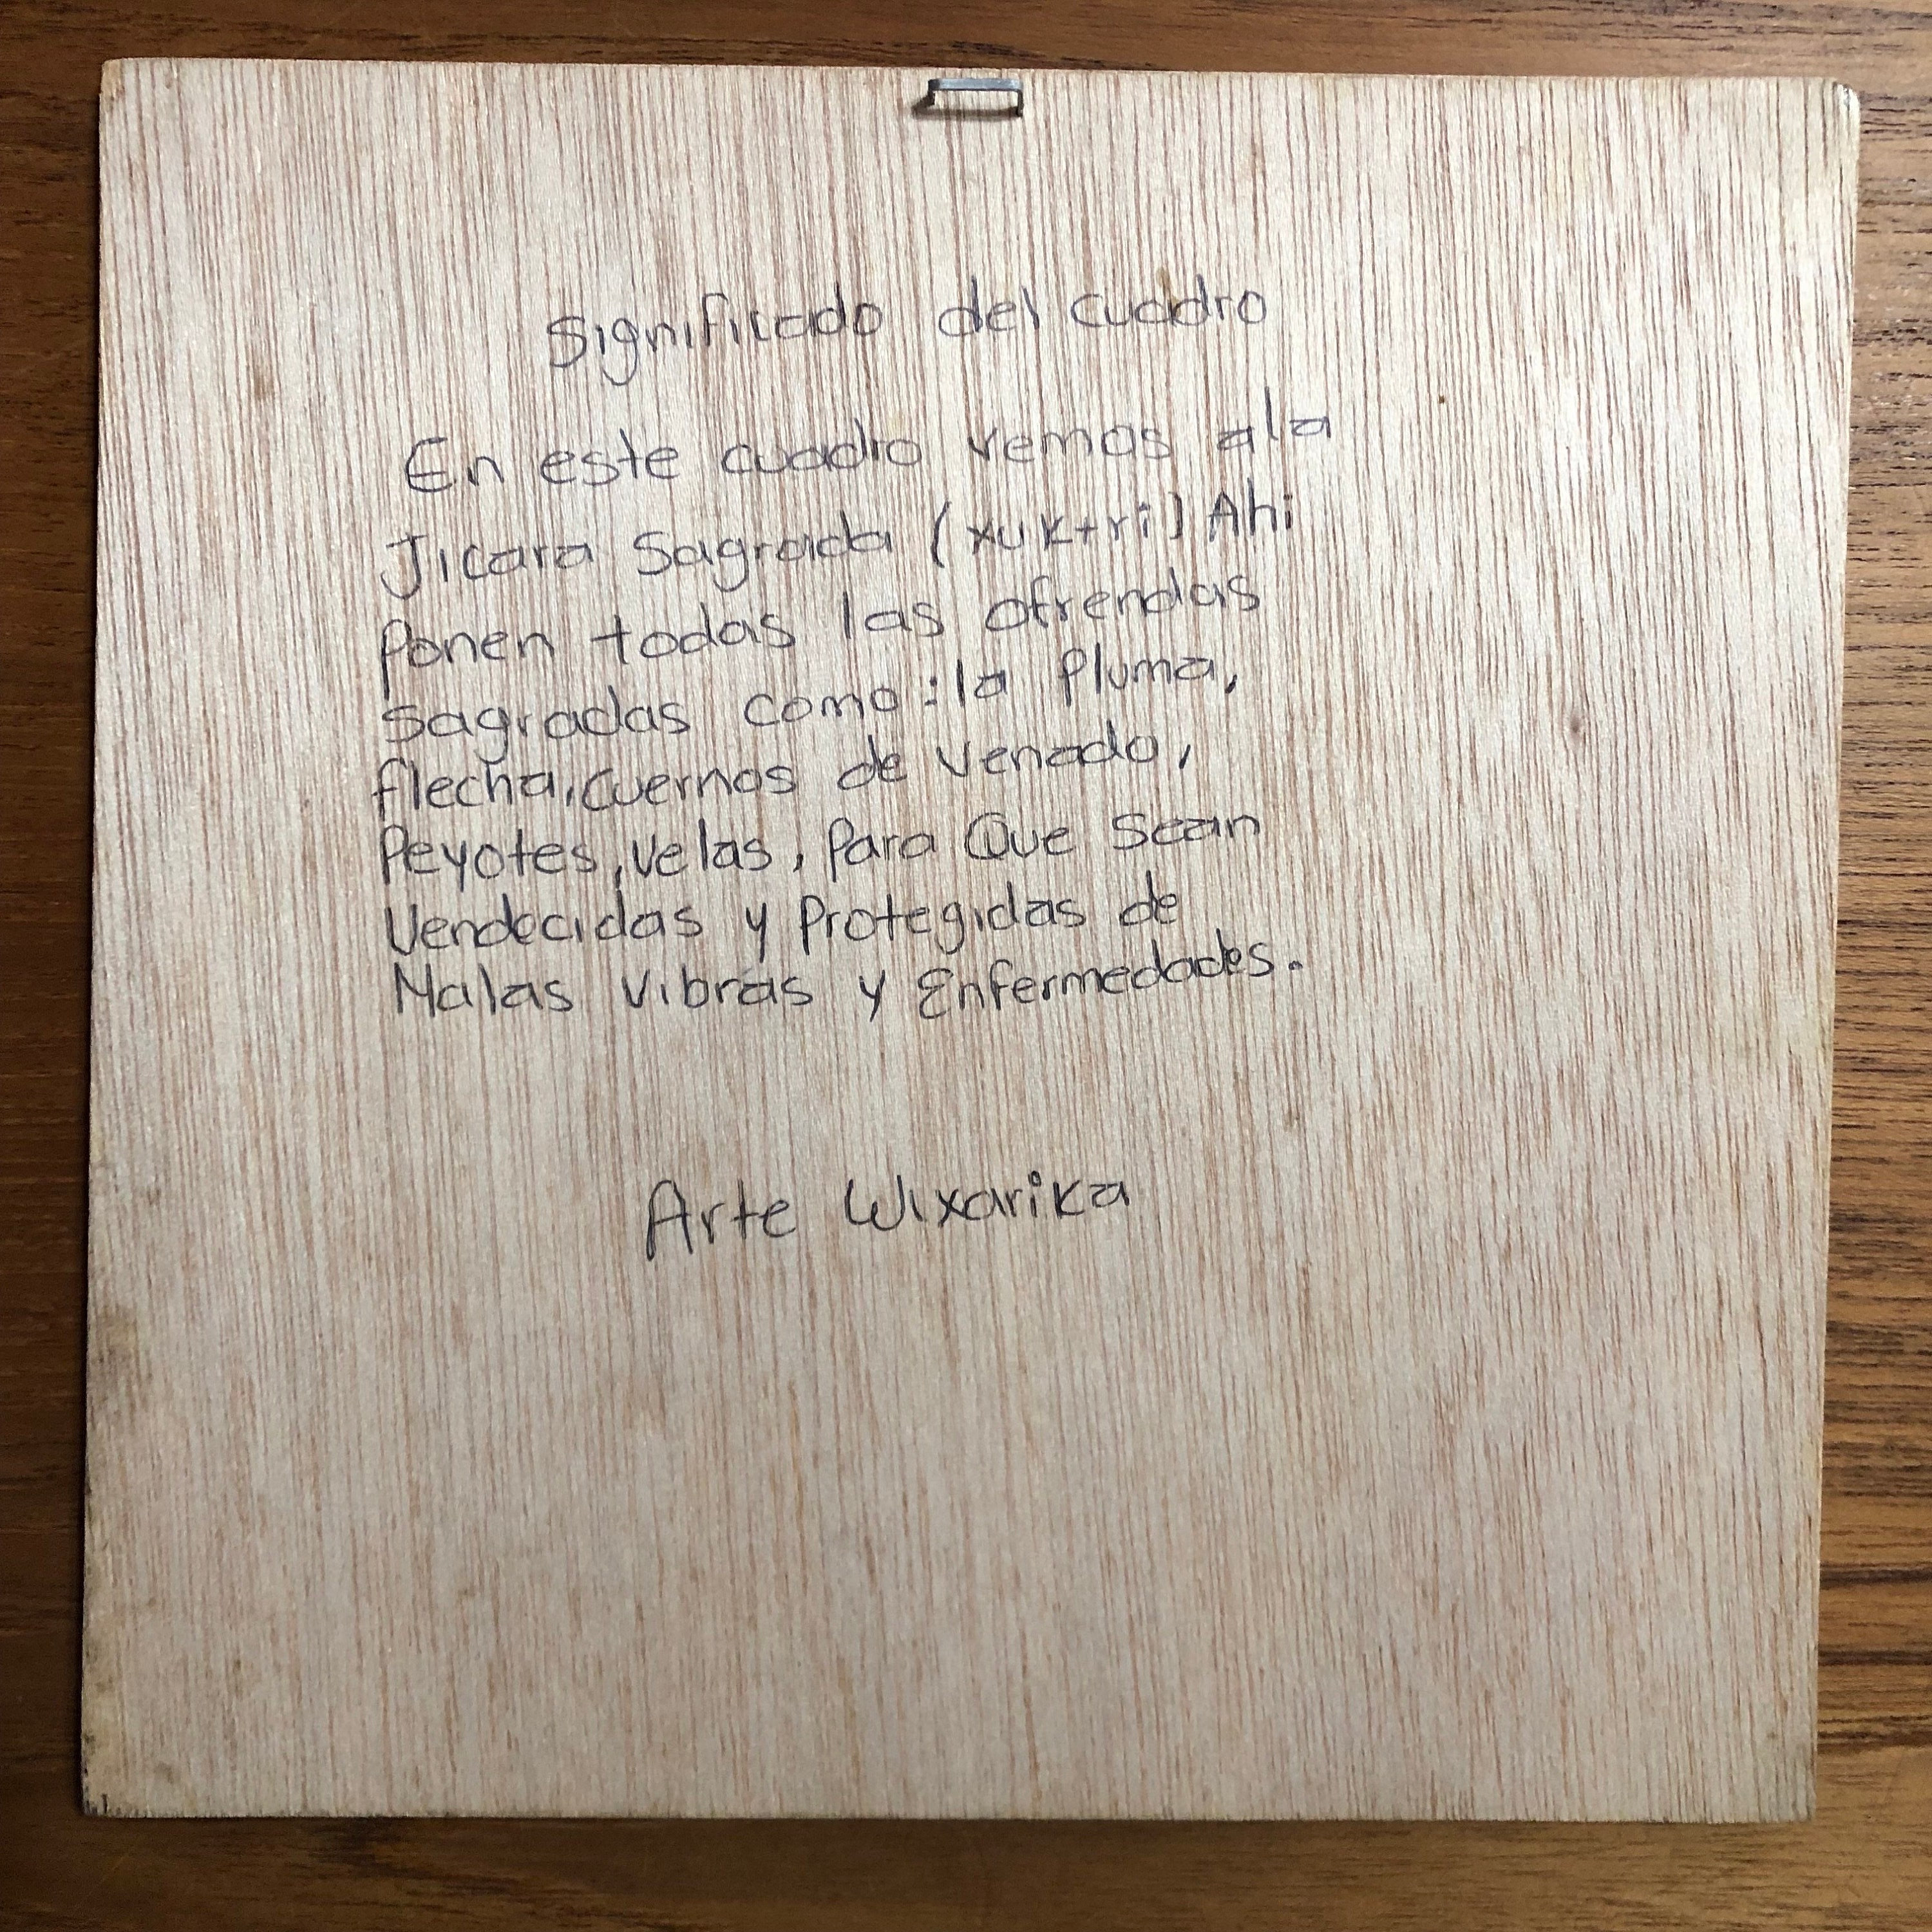 Significado del cuadro
En este cuadro vemos ala
Jicara Sagrada (xuk+ri) Ahi
Ponen todas las ofrendas
Sagradas como: la Pluma,
flecha, cuernos de venado,
Peyotes, velas, Para Que Sean
Vendecidas y Protegidas de
Malas Vibras y Enfermedades.
Arte Wixarika